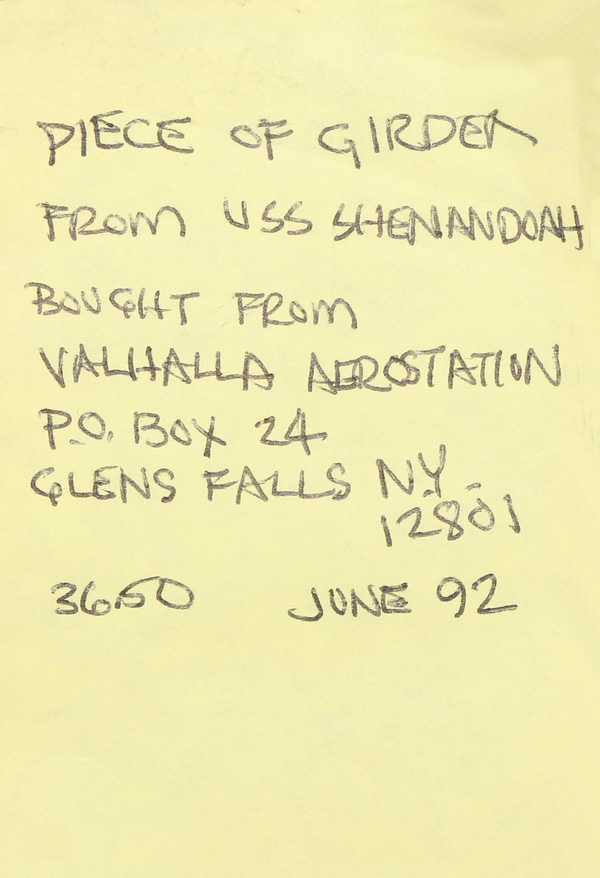 PIECE OF GIRDER
FROM USS SHENANDOAH
BOUGHT FROM
VALHALLA AEROSTATION
P.O. BOX 24
GLENS FALLS NY.
12801
36.50 JUNE 92